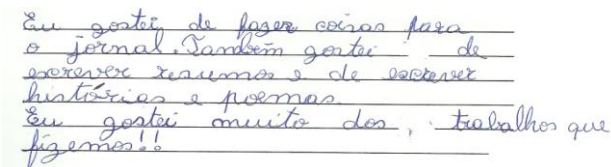 Eu gostei de fazer coisas para
o jornal. Também gostei de
escrever resumos e de escrever
histórias e poemas.
Eu gostei muito dos, trabalhos que
fizemos!!